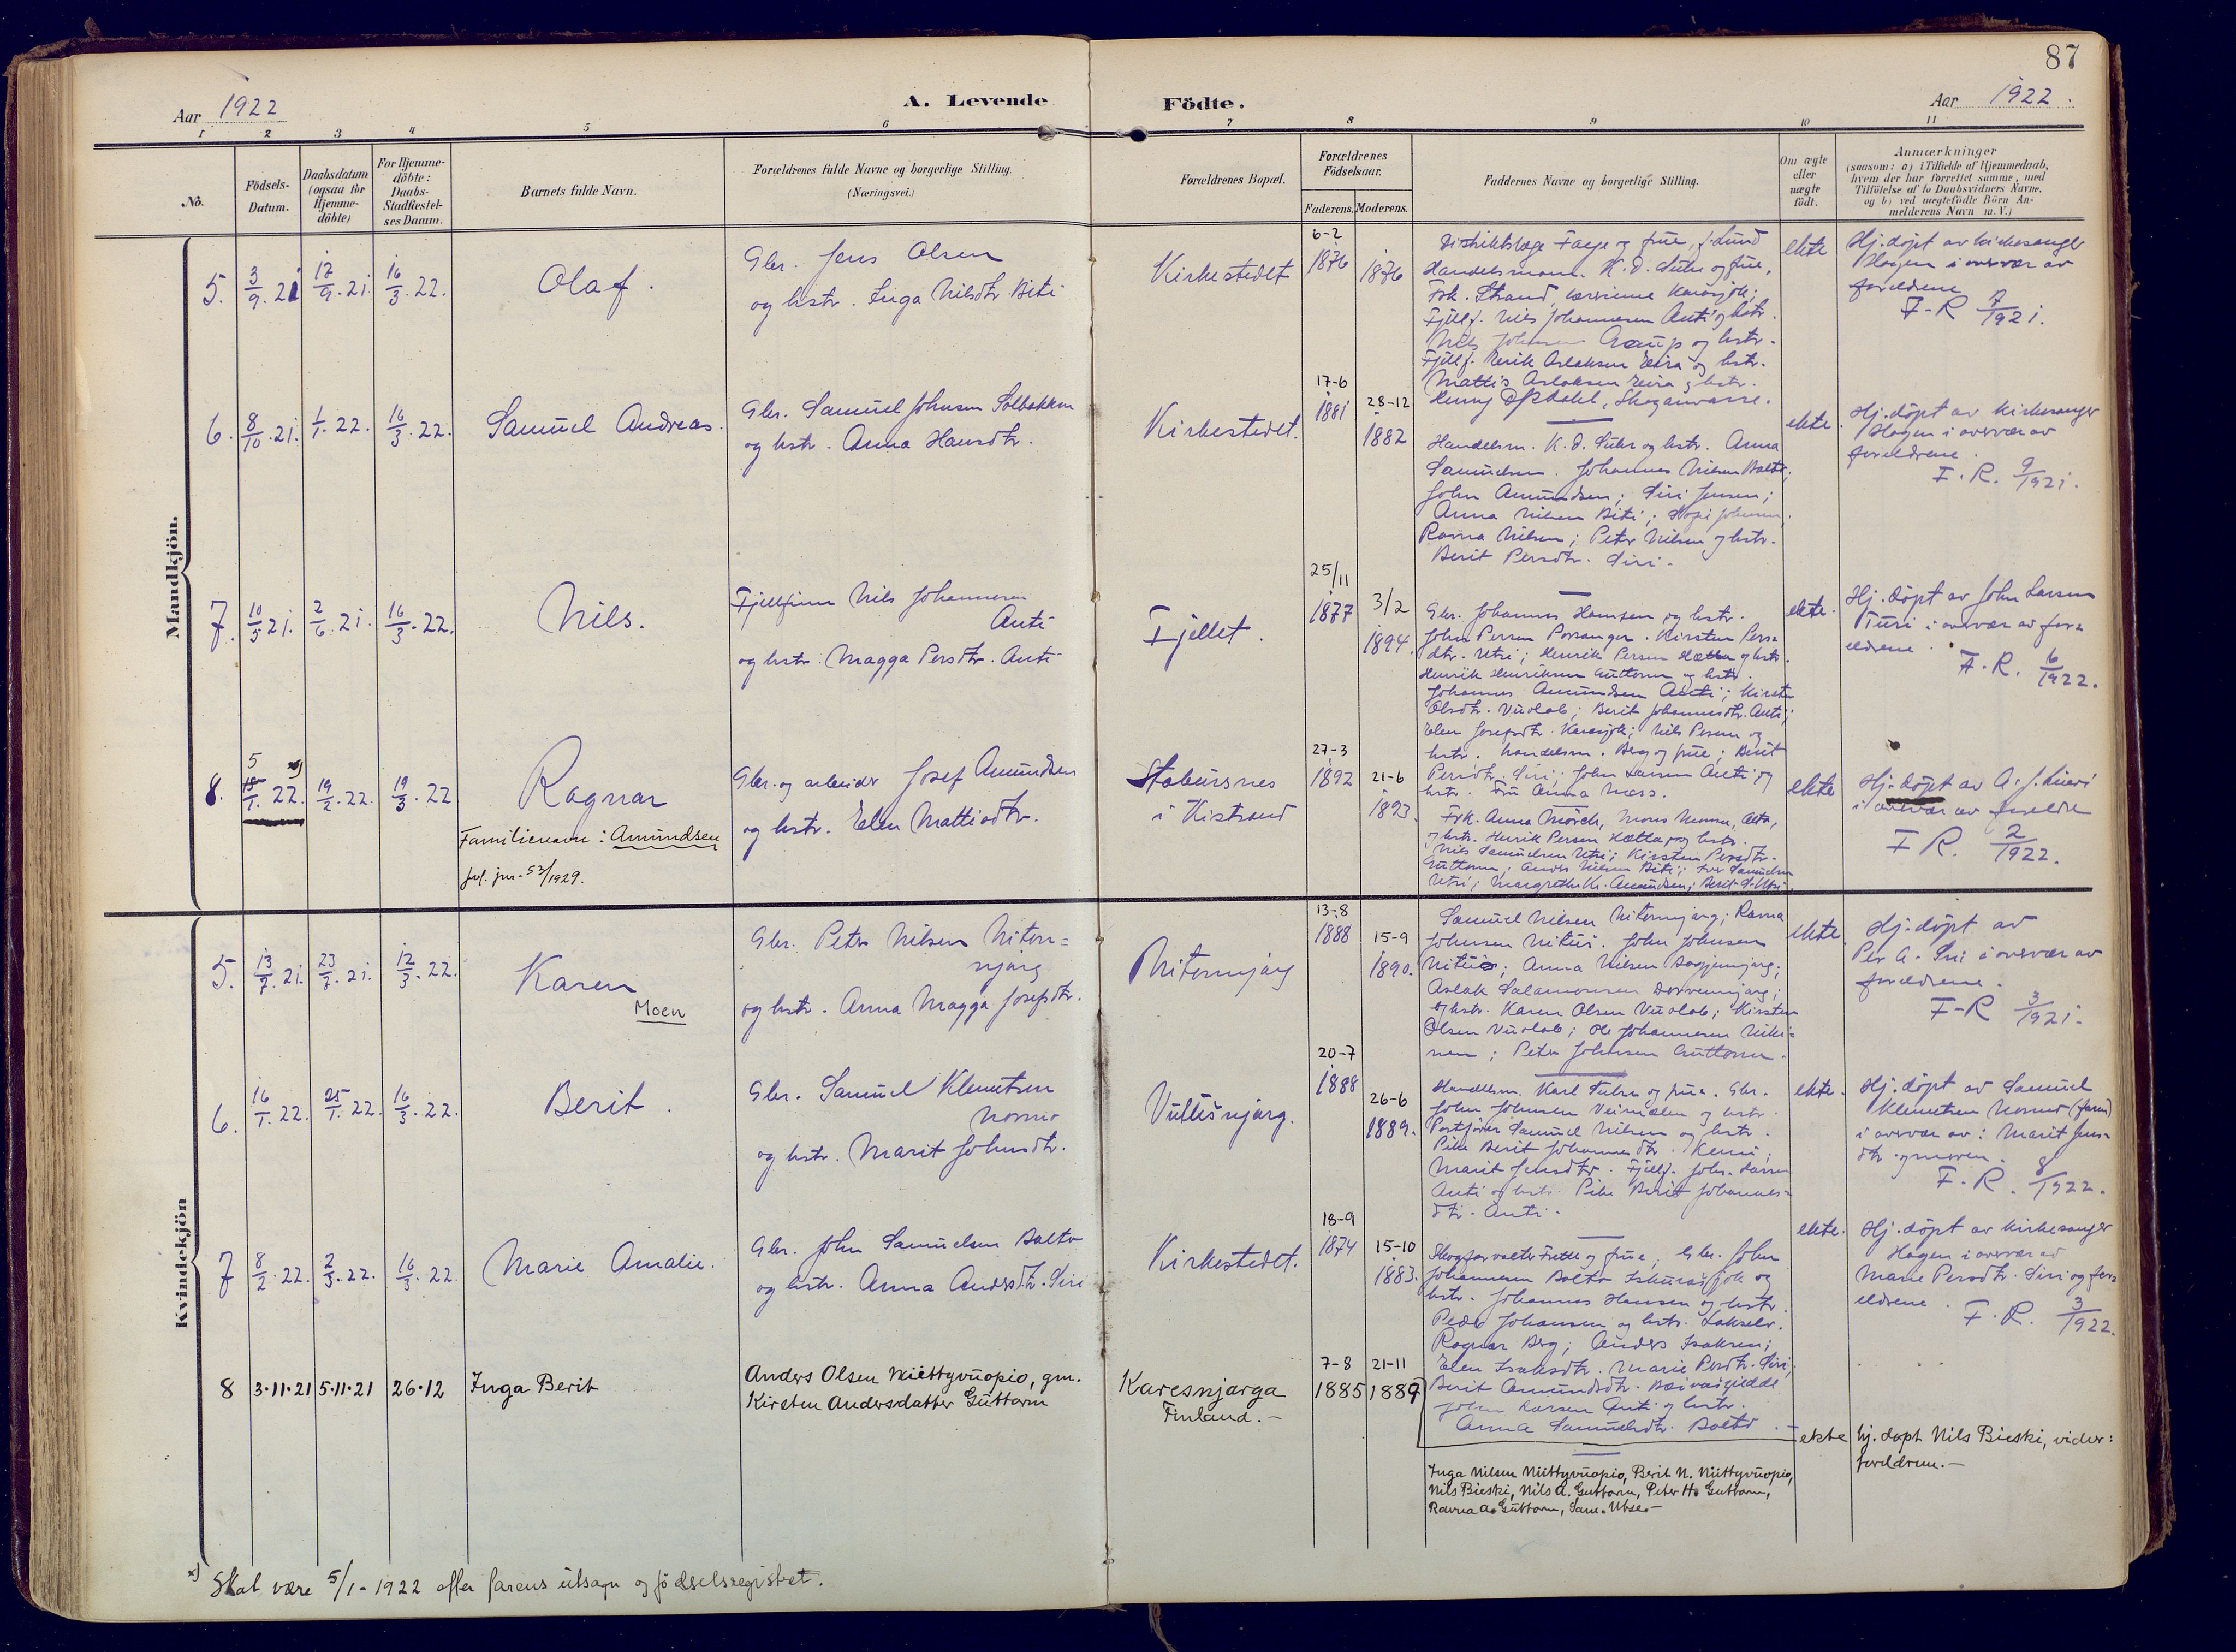 87
Aar 1922
A. Levende Födte.
Aar 1922.
1 2 3 4 5 6 7 8 9 10 11
No.
Födsels-
Datum.
Daabsdatum
(ogsaa for
Hjemme-
döbte)
For Hjemme-
döbte:
Daabs-
Stadfæstel-
ses Datum.
Barnets fulde Navn.
Forældrenes fulde Navne og borgerlige Stilling.
(Næringsvei.)
Forældrenes Bopæl.
Forældrenes
Födselsaar.
Faderens. Moderens.
Faddernes Navne og borgerlige Stilling.
Om ægte
eller
uægte
født.
Anmærkninger
(saasom: a) i Tilfælde af Hjemmedaab,
hvem der har forrettet samme, med
Tilföielse af to Daabsvidners Navne,
og b) ved uægtefödte Börn An-
melderens Navn m. V.)
Mandkjön.
5. 3/9. 21 12/9. 21. 16/3. 22.
Olaf.
Gbr. Jens Olsen
og hstr. Inga Nilsdtr. Biti
Kirkestedet
6-2
1876
1876
Distriktslæge Faeje og frue, f. Lund
Handelsmann K. O. Fuhr og frue,
Frk. Strand, lærerinne Karasjok;
Fjellf. Nils Johannesen Anti og hstr.
Nils Johnsen og hstr.
Fjellf. Erik Aslaksen Eira og hstr.
Mattis Aslaksen Eira og hstr.
Henny Opdahl, Skoganvarre.
ekte
Hj. døpt av kirkesanger
Hagen i overvær av
foreldrene
F-R 7/1921.
6. 8/10. 21. 1/1. 22. 16/3. 22.
Samuel Andreas.
Gbr. Samuel Johnsen Solbakken
og hstr. Anna Hansdtr.
Kirkestedet.
17-6
1881
28-12
1882
Handelsm. K. O. Fuhr og hstr. Anna
Samuelsen. Johannes Nilsen Balto;
John Amundsen; Siri Jensen;
Anna Nilsen Biti; Johnsen,
Ravna Nilsen; Peter Nilsen og hstr.
Berit Persdtr. Siri.
ekte.
Hj. døpt av kirkesanger
Hagen i overvær av
foreldrene.
F. R. 9/1921.
7. 10/5 21. 2/6. 21. 16/3. 22.
Nils.
Fjellfinn Nils Johannesen
Anti
og hstr. Magga Persdtr. Anti
Fjellet.
25/11
1877
3/2
1894.
Gbr. Johannes Hansen og hstr.
John Persen Porsanger. Kirsten Pers-
dtr. Utsi; Henrik Persen Hætta og hstr.
Henrik Henriksen Guttorm og hstr.
Johannes Amundsen Anti; Kirsten
Olsdtr. Vuolab; Berit Johannesdtr. Anti;
Elen Josefsdtr. Karasjok; Nils Persen og
hstr. Handelsm. Berg og frue; Berit
Persdtr. Siri; John Larsen Anti og
hstr. Fru Anna Næss.
ekte.
Hj. døpt av John Larsen
Turi i overvær av for-
eldrene.
F. R. 6/1922.
8. 5 15/1. 22. x) 19/2. 22. 19/3. 22
Ragnar
Familienavn: Amundsen
jvf. jnr. 53/1929.
Gbr. og arbeider Josef Amundsen
og hstr. Elen Mattisdtr.
Stabursnes
i Kistrand
27-3
1892
21-6
1893.
Frk. Anna Mørch,
og hstr. Henrik Persen Hætta og hstr.
Nils Samuelsen Utsi; Kirsten Persdtr.
Guttorm; Anders Nilsen Biti; Samuelsen
Utsi; Margrethe K. Amundsen; Berit S. Utsi.
ekte
Hj. døpt av A. J.
i overvær av foreldre
F R. 2/1922.
Kvindekjön
5. 13/7. 21. 23/7. 21. 12/3. 22.
Karen
Moen
Gbr. Peter Nilsen Niton=
njarg
og hstr. Anna Magga Josefsdtr.
Nitonnjarg
13-8
1888
15-9
1890.
Samuel Nilsen Nitonnjarg; Ravna
Johnsen Nitus. John Johnsen
Anna Nilsen
Aslak Salamonsen Dorvonnjarg;
og hstr. Karen Olsen Vuolab; Kirsten
Olsen Vuolab; Ole Johannesen Niki-
nen; Peter Johnsen Guttorm.
ekte.
Hj. døpt av
Per A. Siri i overvær av
foreldrene.
F-R 3/1921.
6. 16/1. 22. 25/1. 22. 16/3. 22.
Berit.
Gbr. Samuel Klemetsen
Nomio
og hstr. Marit Johnsdtr.
Vuttišnjarg.
20-7
1888
26-6
1889.
Handelsm. Karl Fuhr og frue. Gbr.
John Johnsen Veimælen og hstr.
Postfører Samuel Nilsen og hstr.
Pike Berit Johannesdtr. Kemi;
Marit Jensdtr. Fjellf. John Larsen
Anti og hstr. Pike Berit Johannes-
dtr. Anti.
ekte.
Hj. døpt av Samuel
Klemetsen Nomio (faren)
i overvær av: Marit Jens-
dtr. og moren.
F. R. 8/1922.
7 8/2. 22. 2/3. 22. 16/3. 22.
Marie Amalie.
Gbr. John Samuelsen Balto
og hstr. Anna Andersdtr. Siri
Kirkestedet.
18-9
1874
15-10
1883.
Skogforvalter og frue; Gbr. John
Johannesen Balto og
hstr. Johannes Hansen og hstr.
Peder Johansen og hstr. Lakselv.
Ragnar Berg; Anders Isaksen;
Elen Isaksdtr. Marie Persdtr. Siri;
Berit Amundsdtr. Bæivašgiedde
John Larsen Anti og hstr.
Anna Samuelsdtr. Balto.
ekte.
Hj. døpt av kirkesanger
Hagen i overvær av
Marie Persdtr. Siri og for-
eldrene. F. R. 3/1922.
8 3·11·21 5·11·21 26·12
Inga Berit
Anders Olsen Niittyvuopio, gm.
Kirsten Andersdatter Guttorm
Karesnjarga
Finland.-
7-8
1885
21-11
1889
ekte
hj. døpt Nils Bieski, vidner:
foreldrene.-
Inga Nilsen Niittyvuopio, Berit N. Niittyvuopio,
Nils Bieski, Nils A. Guttorm, Peter H. Guttorm,
Ravna A. Guttorm, Sam. Utse.-
x) Skal være 5/1-1922 efter farens utsagn og fødselsregistret.